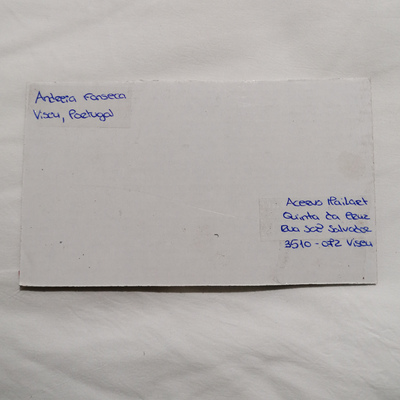 Andreia Fonseca
Viseu, Portugal
Acervo Mailart
Quinta da Cruz
Rua São Salvador
3510-072 Viseu